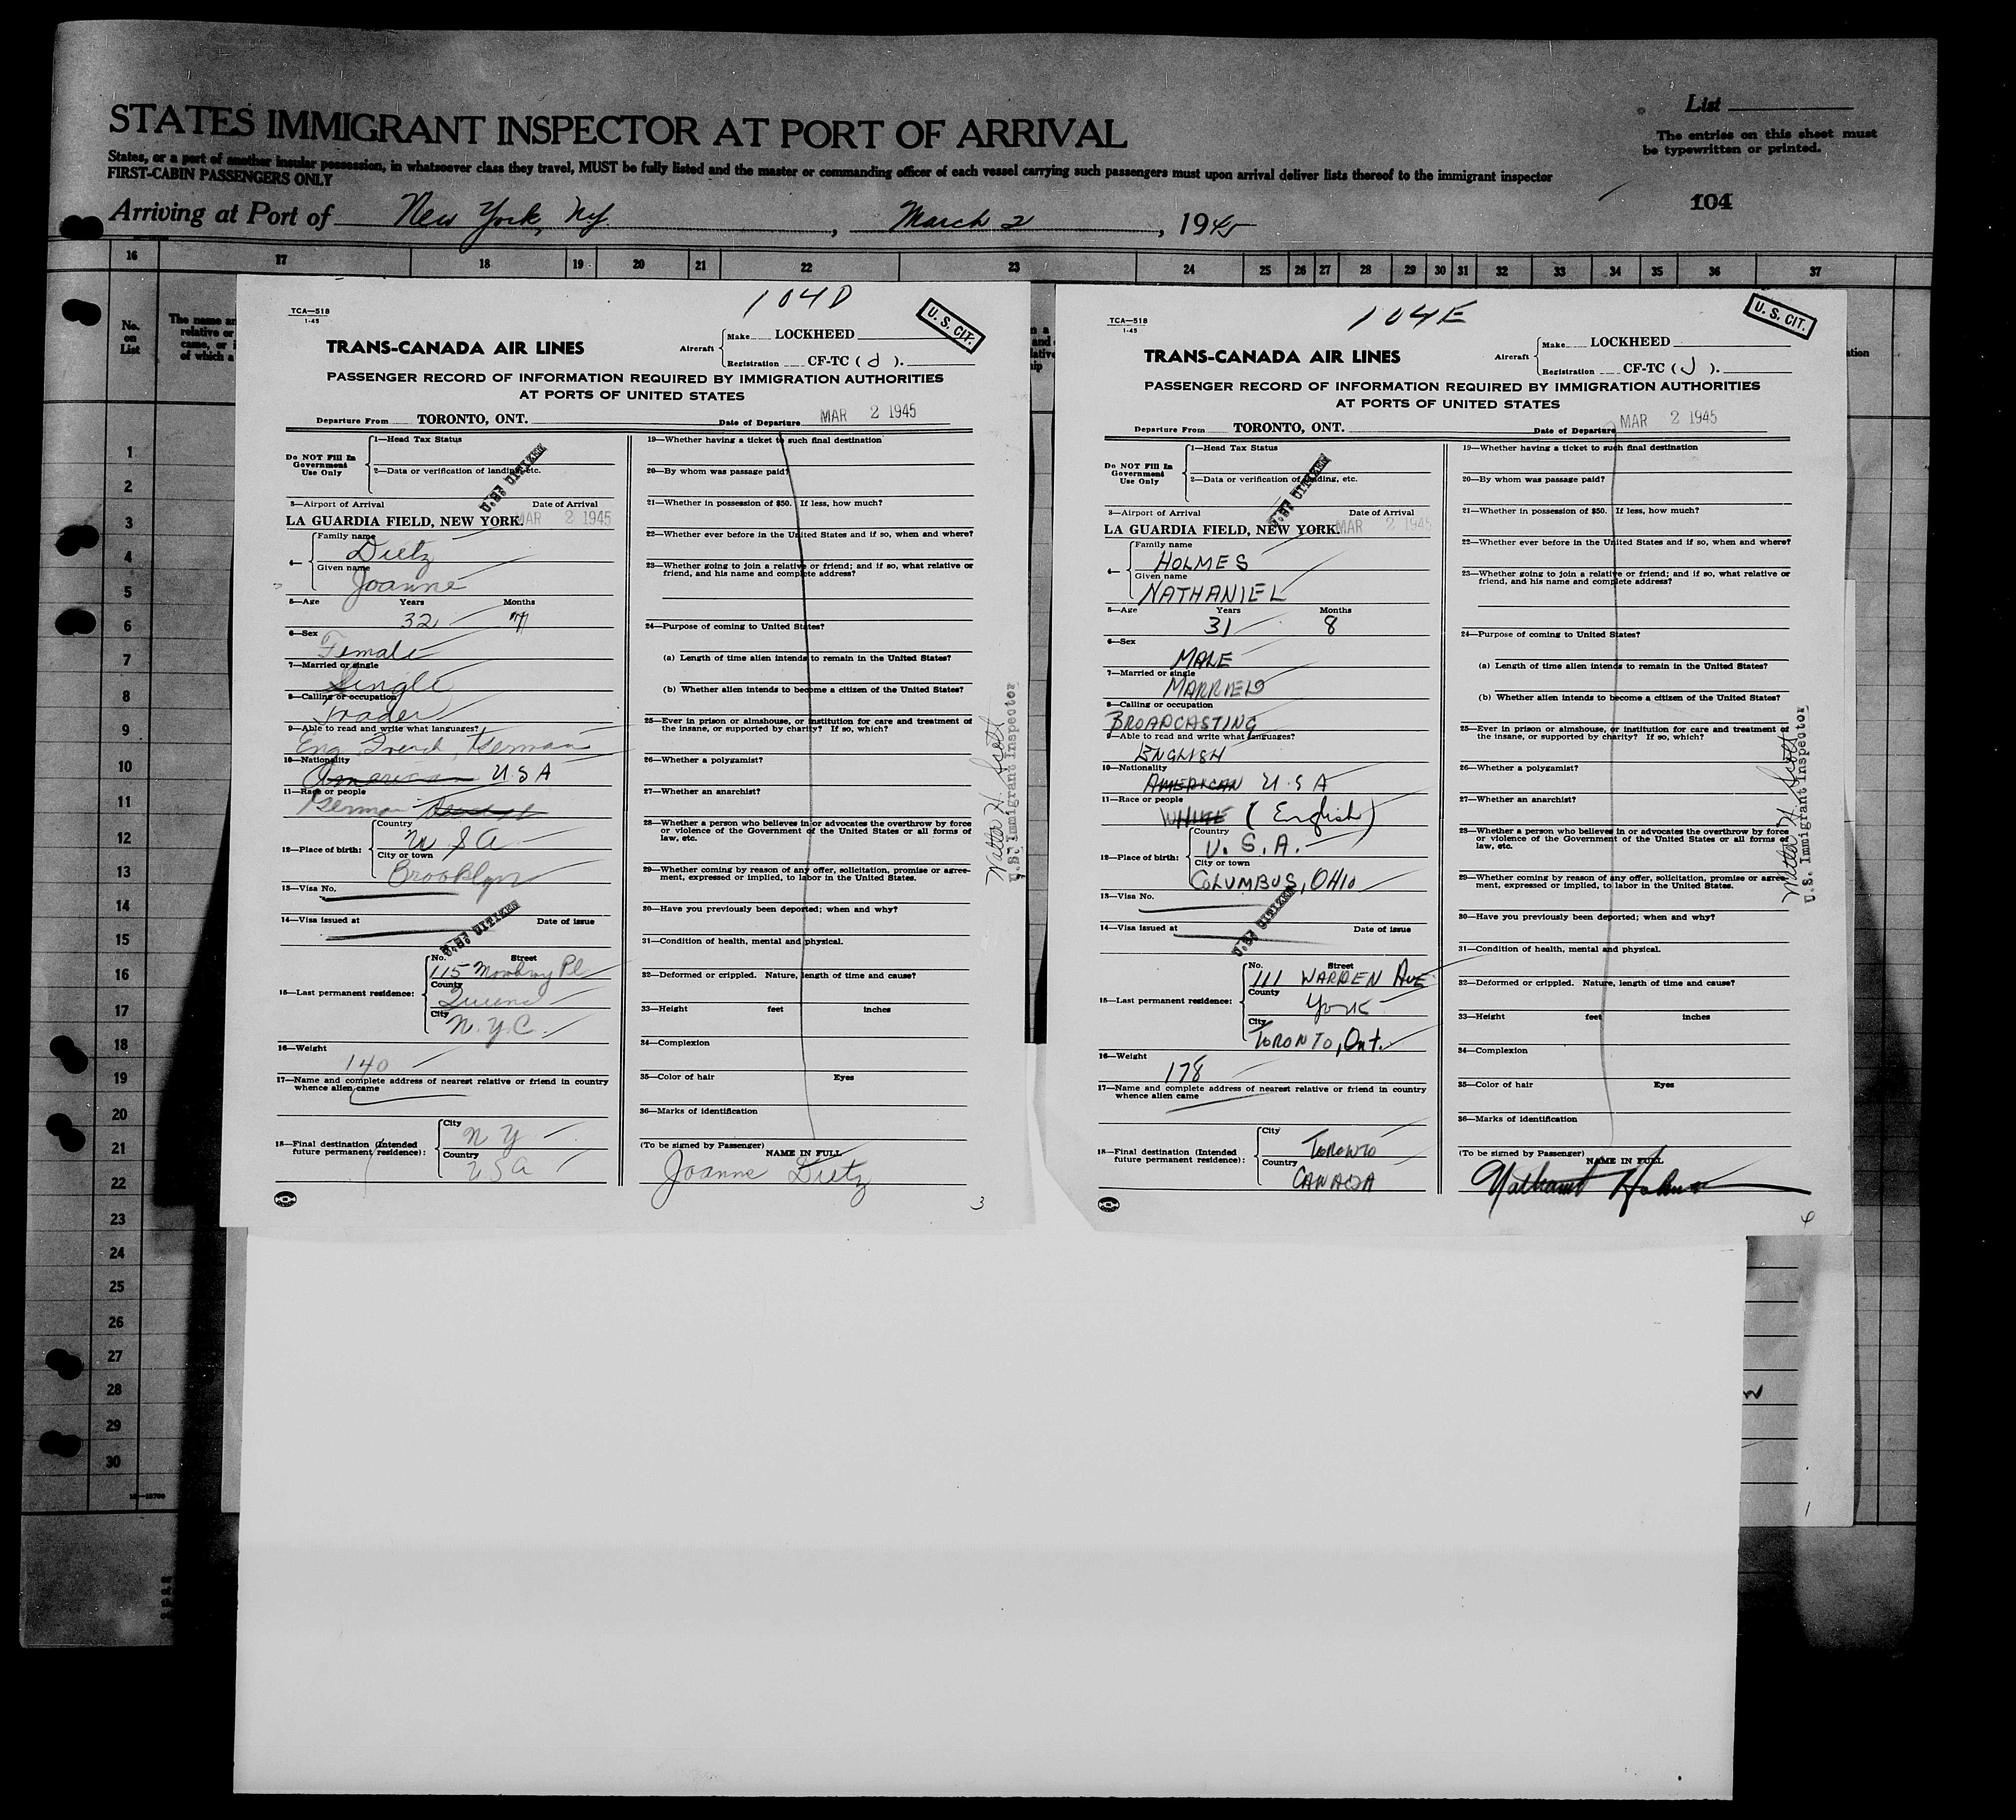 List
STATES IMMIGRANT INSPECTOR AT PORT OF ARRIVAL
The entries on this sheet must
be typewritten or printed.
States, or a port of another insular possession, in whatsoever class they travel, MUST be fully listed and the master or commanding officer of each vessel carrying such passengers must upon arrival deliver lists thereof to the immigrant inspector
FIRST-CABIN PASSENGERS ONLY
104
Arriving at Port of New York, Ny. , March 2 , 1945
16 17 18 19 20 21 22 23 24 25 26 27 28 29 30 31 32 33 34 35 36 37
No.
on
List
The name an
relative or
came, or i
of which a
1
2
3
4
5
6
7
8
9
10
11
12
13
14
15
16
17
18
19
20
21
22
23
24
25
26
27
28
29
30
104D
U. S. CIT.
TCA—518
1-45
TRANS-CANADA AIR LINES
Aircraft
Make LOCKHEED
Registration CF-TC ( J ).
PASSENGER RECORD OF INFORMATION REQUIRED BY IMMIGRATION AUTHORITIES
AT PORTS OF UNITED STATES
Departure From TORONTO, ONT. Date of Departure MAR 2 1945
Do NOT Fill In
Government
Use Only
1—Head Tax Status
2—Data or verification of landing, etc.
U.S. CITIZEN
3—Airport of Arrival Date of Arrival
LA GUARDIA FIELD, NEW YORK. MAR 2 1945
4—
Family name
Dietz
Given name
Joanne
5—Age Years Months
32 7
6—Sex
Female
7—Married or single
Single
8—Calling or occupation
Trader
9—Able to read and write what languages?
Eng. French, German
10—Nationality
American U.S.A
11—Race or people
German
12—Place of birth:
Country
U S A
City or town
Brooklyn
13—Visa No.
14—Visa issued at Date of issue
U.S. CITIZEN
15—Last permanent residence:
No. Street
115 Mowbray Pl
County
Queens
City
N.Y.C.
16—Weight
140
17—Name and complete address of nearest relative or friend in country
whence alien came
18—Final destination (Intended
future permanent residence):
City
N Y
Country
U S A
19—Whether having a ticket to such final destination
20—By whom was passage paid?
21—Whether in possession of $50. If less, how much?
22—Whether ever before in the United States and if so, when and where?
23—Whether going to join a relative or friend; and if so, what relative or
friend, and his name and complete address?
24—Purpose of coming to United States?
(a) Length of time alien intends to remain in the United States?
(b) Whether alien intends to become a citizen of the United States?
25—Ever in prison or almshouse, or institution for care and treatment of
the insane, or supported by charity? If so, which?
26—Whether a polygamist?
27—Whether an anarchist?
28—Whether a person who believes in or advocates the overthrow by force
or violence of the Government of the United States or all forms of
law, etc.
29—Whether coming by reason of any offer, solicitation, promise or agree-
ment, expressed or implied, to labor in the United States.
30—Have you previously been deported; when and why?
31—Condition of health, mental and physical.
32—Deformed or crippled. Nature, length of time and cause?
33—Height feet inches
34—Complexion
35—Color of hair Eyes
36—Marks of identification
(To be signed by Passenger)
NAME IN FULL
Joanne Dietz
3
Walter H. Scott
U.S. Immigrant Inspector
104E
U. S. CIT.
TCA—518
1-45
TRANS-CANADA AIR LINES
Aircraft
Make LOCKHEED
Registration CF-TC ( J ).
PASSENGER RECORD OF INFORMATION REQUIRED BY IMMIGRATION AUTHORITIES
AT PORTS OF UNITED STATES
Departure From TORONTO, ONT. Date of Departure MAR 2 1945
Do NOT Fill In
Government
Use Only
1—Head Tax Status
2—Data or verification of landing, etc.
U.S. CITIZEN
3—Airport of Arrival Date of Arrival
LA GUARDIA FIELD, NEW YORK. MAR 2 1945
4—
Family name
HOLMES
Given name
NATHANIEL
5—Age Years Months
31 8
6—Sex
MALE
7—Married or single
MARRIED
8—Calling or occupation
BROADCASTING
9—Able to read and write what languages?
ENGLISH
10—Nationality
AMERICAN U.S.A
11—Race or people
WHITE (English)
12—Place of birth:
Country
U. S. A.
City or town
COLUMBUS, OHIO
13—Visa No.
14—Visa issued at Date of issue
U.S. CITIZEN
15—Last permanent residence:
No. Street
111 WARREN AVE
County
York
City
TORONTO, Ont.
16—Weight
178
17—Name and complete address of nearest relative or friend in country
whence alien came
18—Final destination (Intended
future permanent residence):
City
TORONTO
Country
CANADA
19—Whether having a ticket to such final destination
20—By whom was passage paid?
21—Whether in possession of $50. If less, how much?
22—Whether ever before in the United States and if so, when and where?
23—Whether going to join a relative or friend; and if so, what relative or
friend, and his name and complete address?
24—Purpose of coming to United States?
(a) Length of time alien intends to remain in the United States?
(b) Whether alien intends to become a citizen of the United States?
25—Ever in prison or almshouse, or institution for care and treatment of
the insane, or supported by charity? If so, which?
26—Whether a polygamist?
27—Whether an anarchist?
28—Whether a person who believes in or advocates the overthrow by force
or violence of the Government of the United States or all forms of
law, etc.
29—Whether coming by reason of any offer, solicitation, promise or agree-
ment, expressed or implied, to labor in the United States.
30—Have you previously been deported; when and why?
31—Condition of health, mental and physical.
32—Deformed or crippled. Nature, length of time and cause?
33—Height feet inches
34—Complexion
35—Color of hair Eyes
36—Marks of identification
(To be signed by Passenger)
NAME IN FULL
Nathaniel Holmes
Walter H. Scott
U.S. Immigrant Inspector